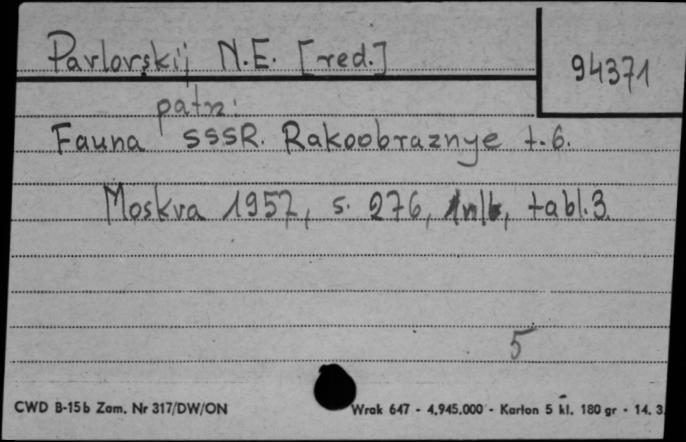 Pavlovskij N.E. [red.]
94371
patrz:
Fauna SSSR. Rakoobraznye t.6.
Moskva 1957, s. 276, tabl.3.
5
CWD B-15b Zam. Nr 317/DW/ON Wrak 647 - 4.945.000 - Karton 5 kl. 180 gr - 14. 3